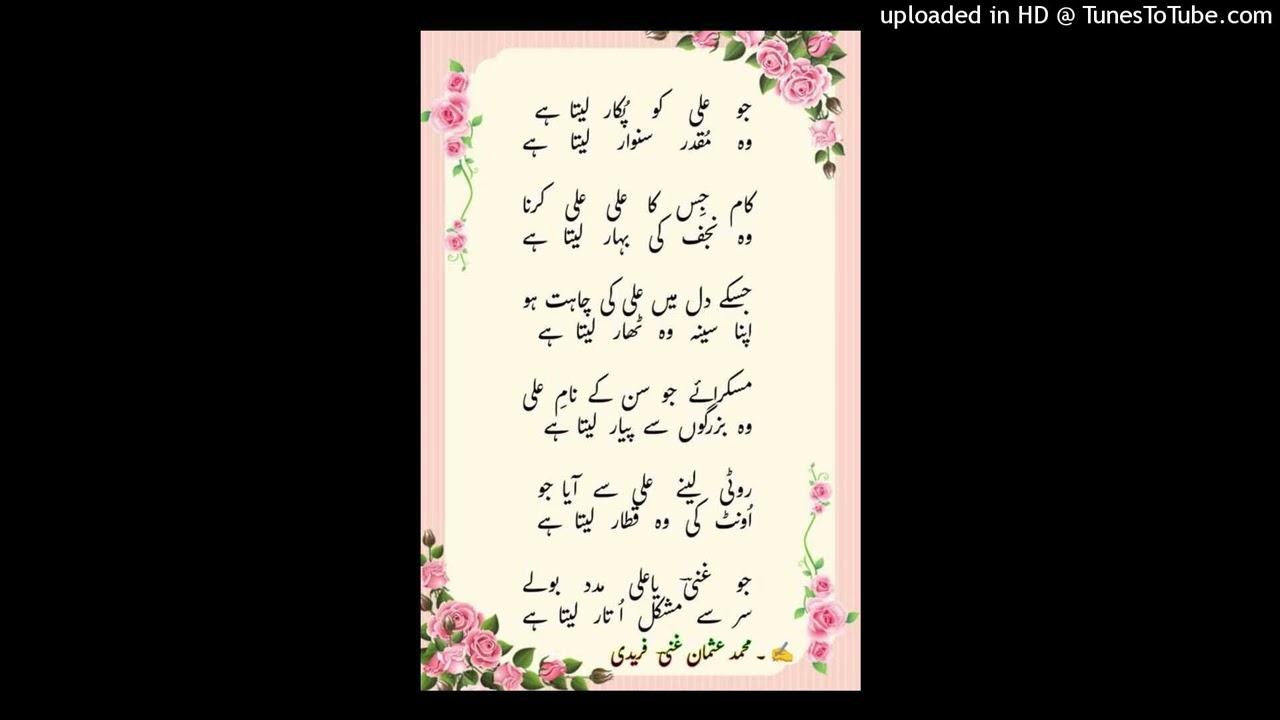 uploaded in HD @ TunesToTube.com
جو علی کو پُکار لیتا ہے
وہ مُقدر سنوار لیتا ہے
کام جِس کا علی علی کرنا
وہ نجف کی بہار لیتا ہے
جسکے دل میں علی کی چاہت ہو
اپنا سینہ وہ ٹھار لیتا ہے
مسکرائے جو سن کے نامِ علی
وہ بزرگوں سے پیار لیتا ہے
روٹی لینے علی سے آیا جو
اُونٹ کی وہ قطار لیتا ہے
جو غنیؔ یاعلی مدد بولے
سر سے مشکل اُتار لیتا ہے
✍️ ۔ محمد عثمان غنیؔ فریدی